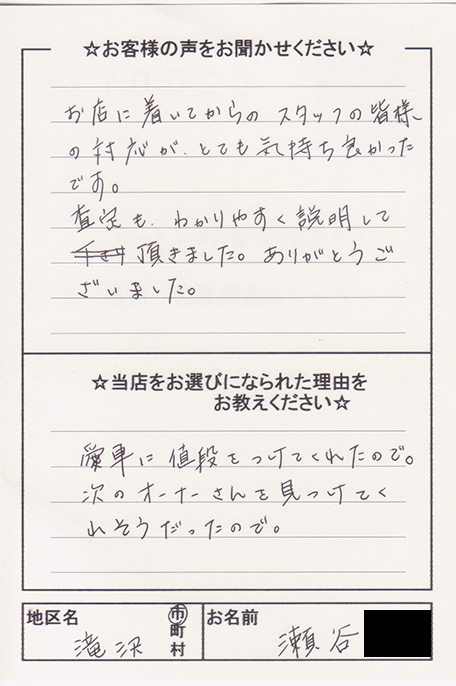 ☆お客様の声をお聞かせください☆
お店に着いてからの スタッフの皆様
の対応が、とても気持ち良かった
です。
査定も、わかりやすく説明して
頂きました。ありがとうご
ざいました。
☆当店をお選びになられた理由を
お教えください☆
愛車に値段をつけてくれたので。
次のオーナーさんを見つけてく
れそうだったので。
地区名 市町村 お名前
滝沢 瀬谷